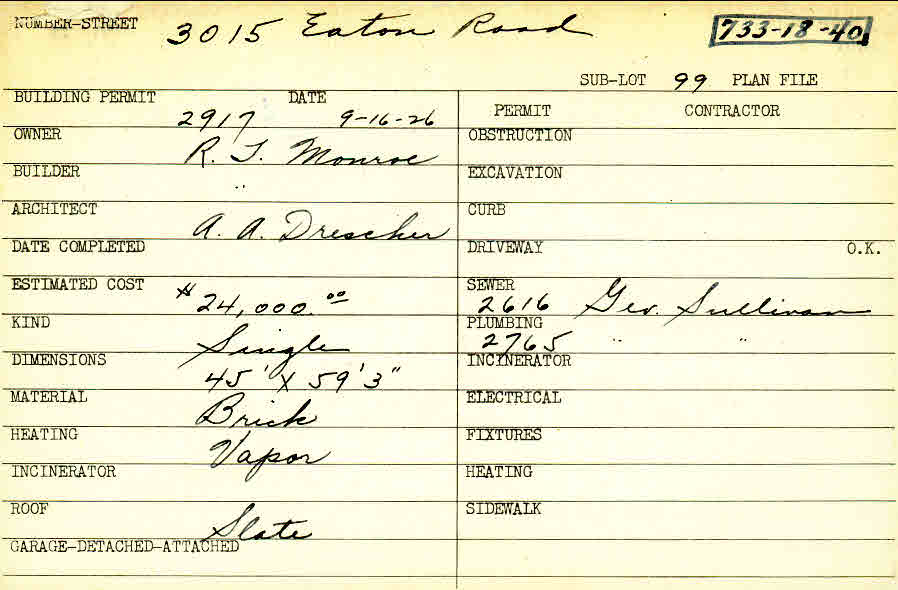 NUMBER-STREET 3015 Eaton Road 733-18-40
SUB-LOT 99 PLAN FILE
BUILDING PERMIT 2917 DATE 9-16-26
PERMIT CONTRACTOR
OWNER R. J. Monroe
OBSTRUCTION
BUILDER "
EXCAVATION
ARCHITECT A. A. Drescher
CURB
DATE COMPLETED
DRIVEWAY O.K.
ESTIMATED COST $24,000.00
SEWER 2616 Geo. Sullivan
KIND Single
PLUMBING 2765 " "
DIMENSIONS 45' X 59'3"
INCINERATOR
MATERIAL Brick
ELECTRICAL
HEATING Vapor
FIXTURES
INCINERATOR
HEATING
ROOF Slate
SIDEWALK
GARAGE-DETACHED-ATTACHED